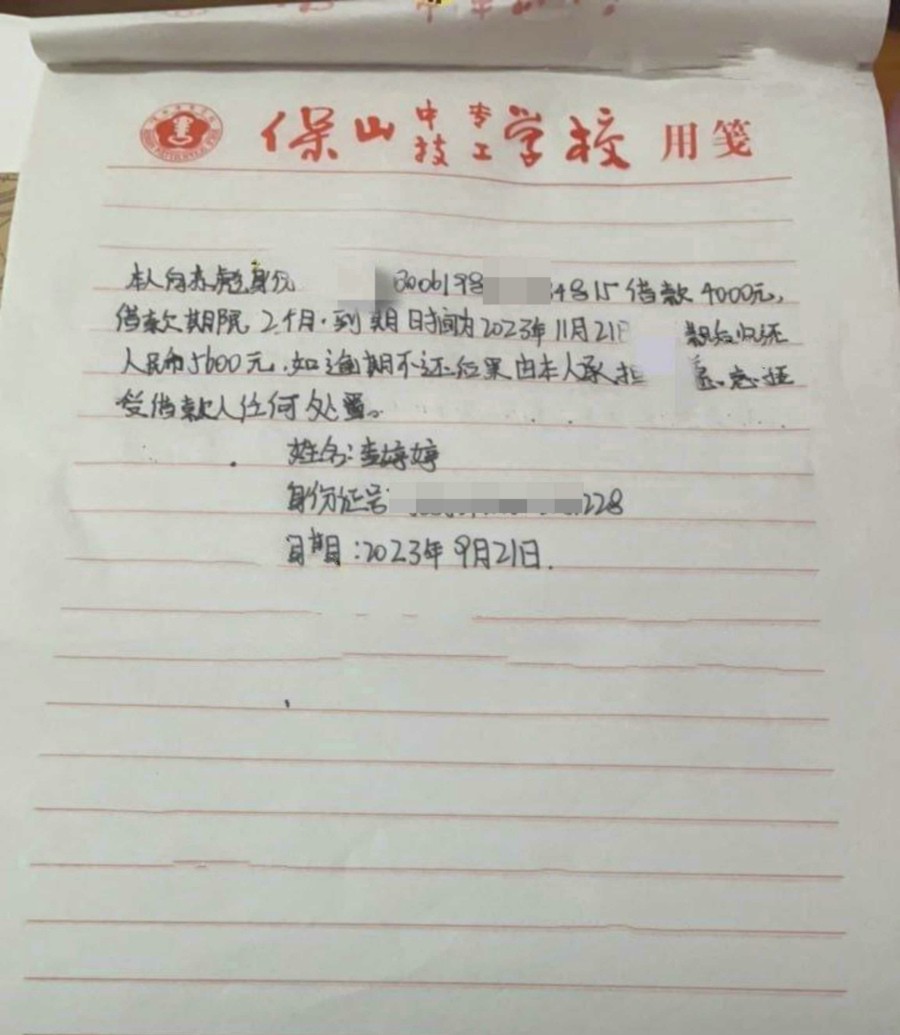 保山中专技工学校用笺
本人向 身份 3006198 4815借款4000元,
借款期限2个月.到期日时间为2023年11月21日 归还
人民币5600元.如逾期不还后果由本人承担
受借款人任何处置。
姓名:李婷婷
身份证号 228
日期:2023年9月21日.